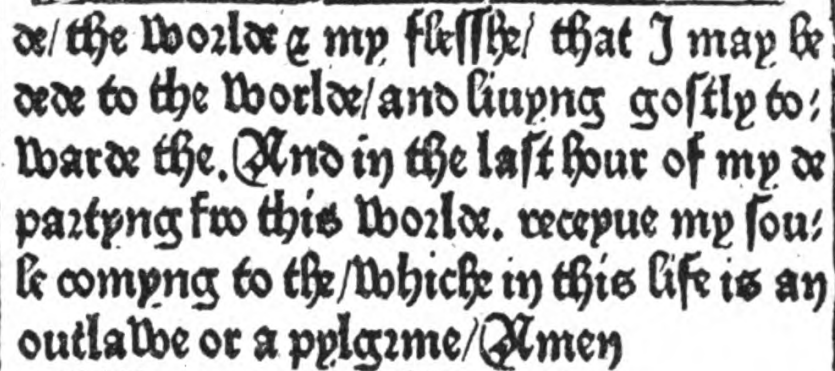 de/ the worlde & my flesshe/ that I may be
dede to the worlde/ and liuyng gostly to⸗
warde the. And in the last hour of my de
partyng fro this worlde. receyue my sou⸗
le comyng to the/ whiche in this life is an
outlawe or a pylgrime/ Amen